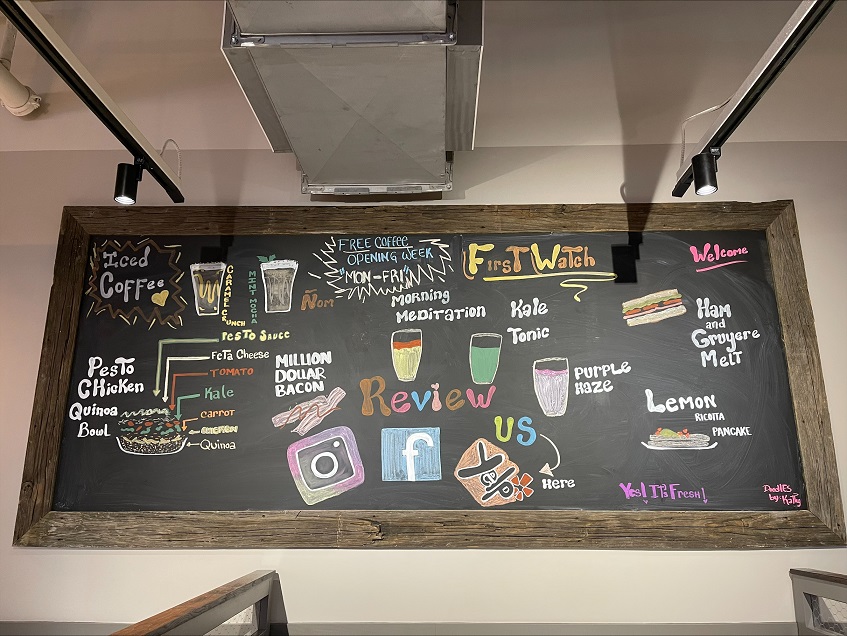 Iced
Coffee
CARAMEL CRUNCH
MINT MOCHA
Ñom
FREE COFFEE
OPENING WEEK
"MON-FRI"
First Watch
Welcome
Morning
Meditation
Kale
Tonic
PURPLE
HAZE
Ham
and
Gruyere
Melt
Lemon
RICOTTA
PANCAKE
Pesto
CHicken
Quinoa
Bowl
Pesto Sauce
Feta Cheese
TOMATO
Kale
carrot
Quinoa
MILLION
DOLLAR
BACON
Review
US
f
Yelp
Here
Yes! It's Fresh!
Doodles
by: Katy